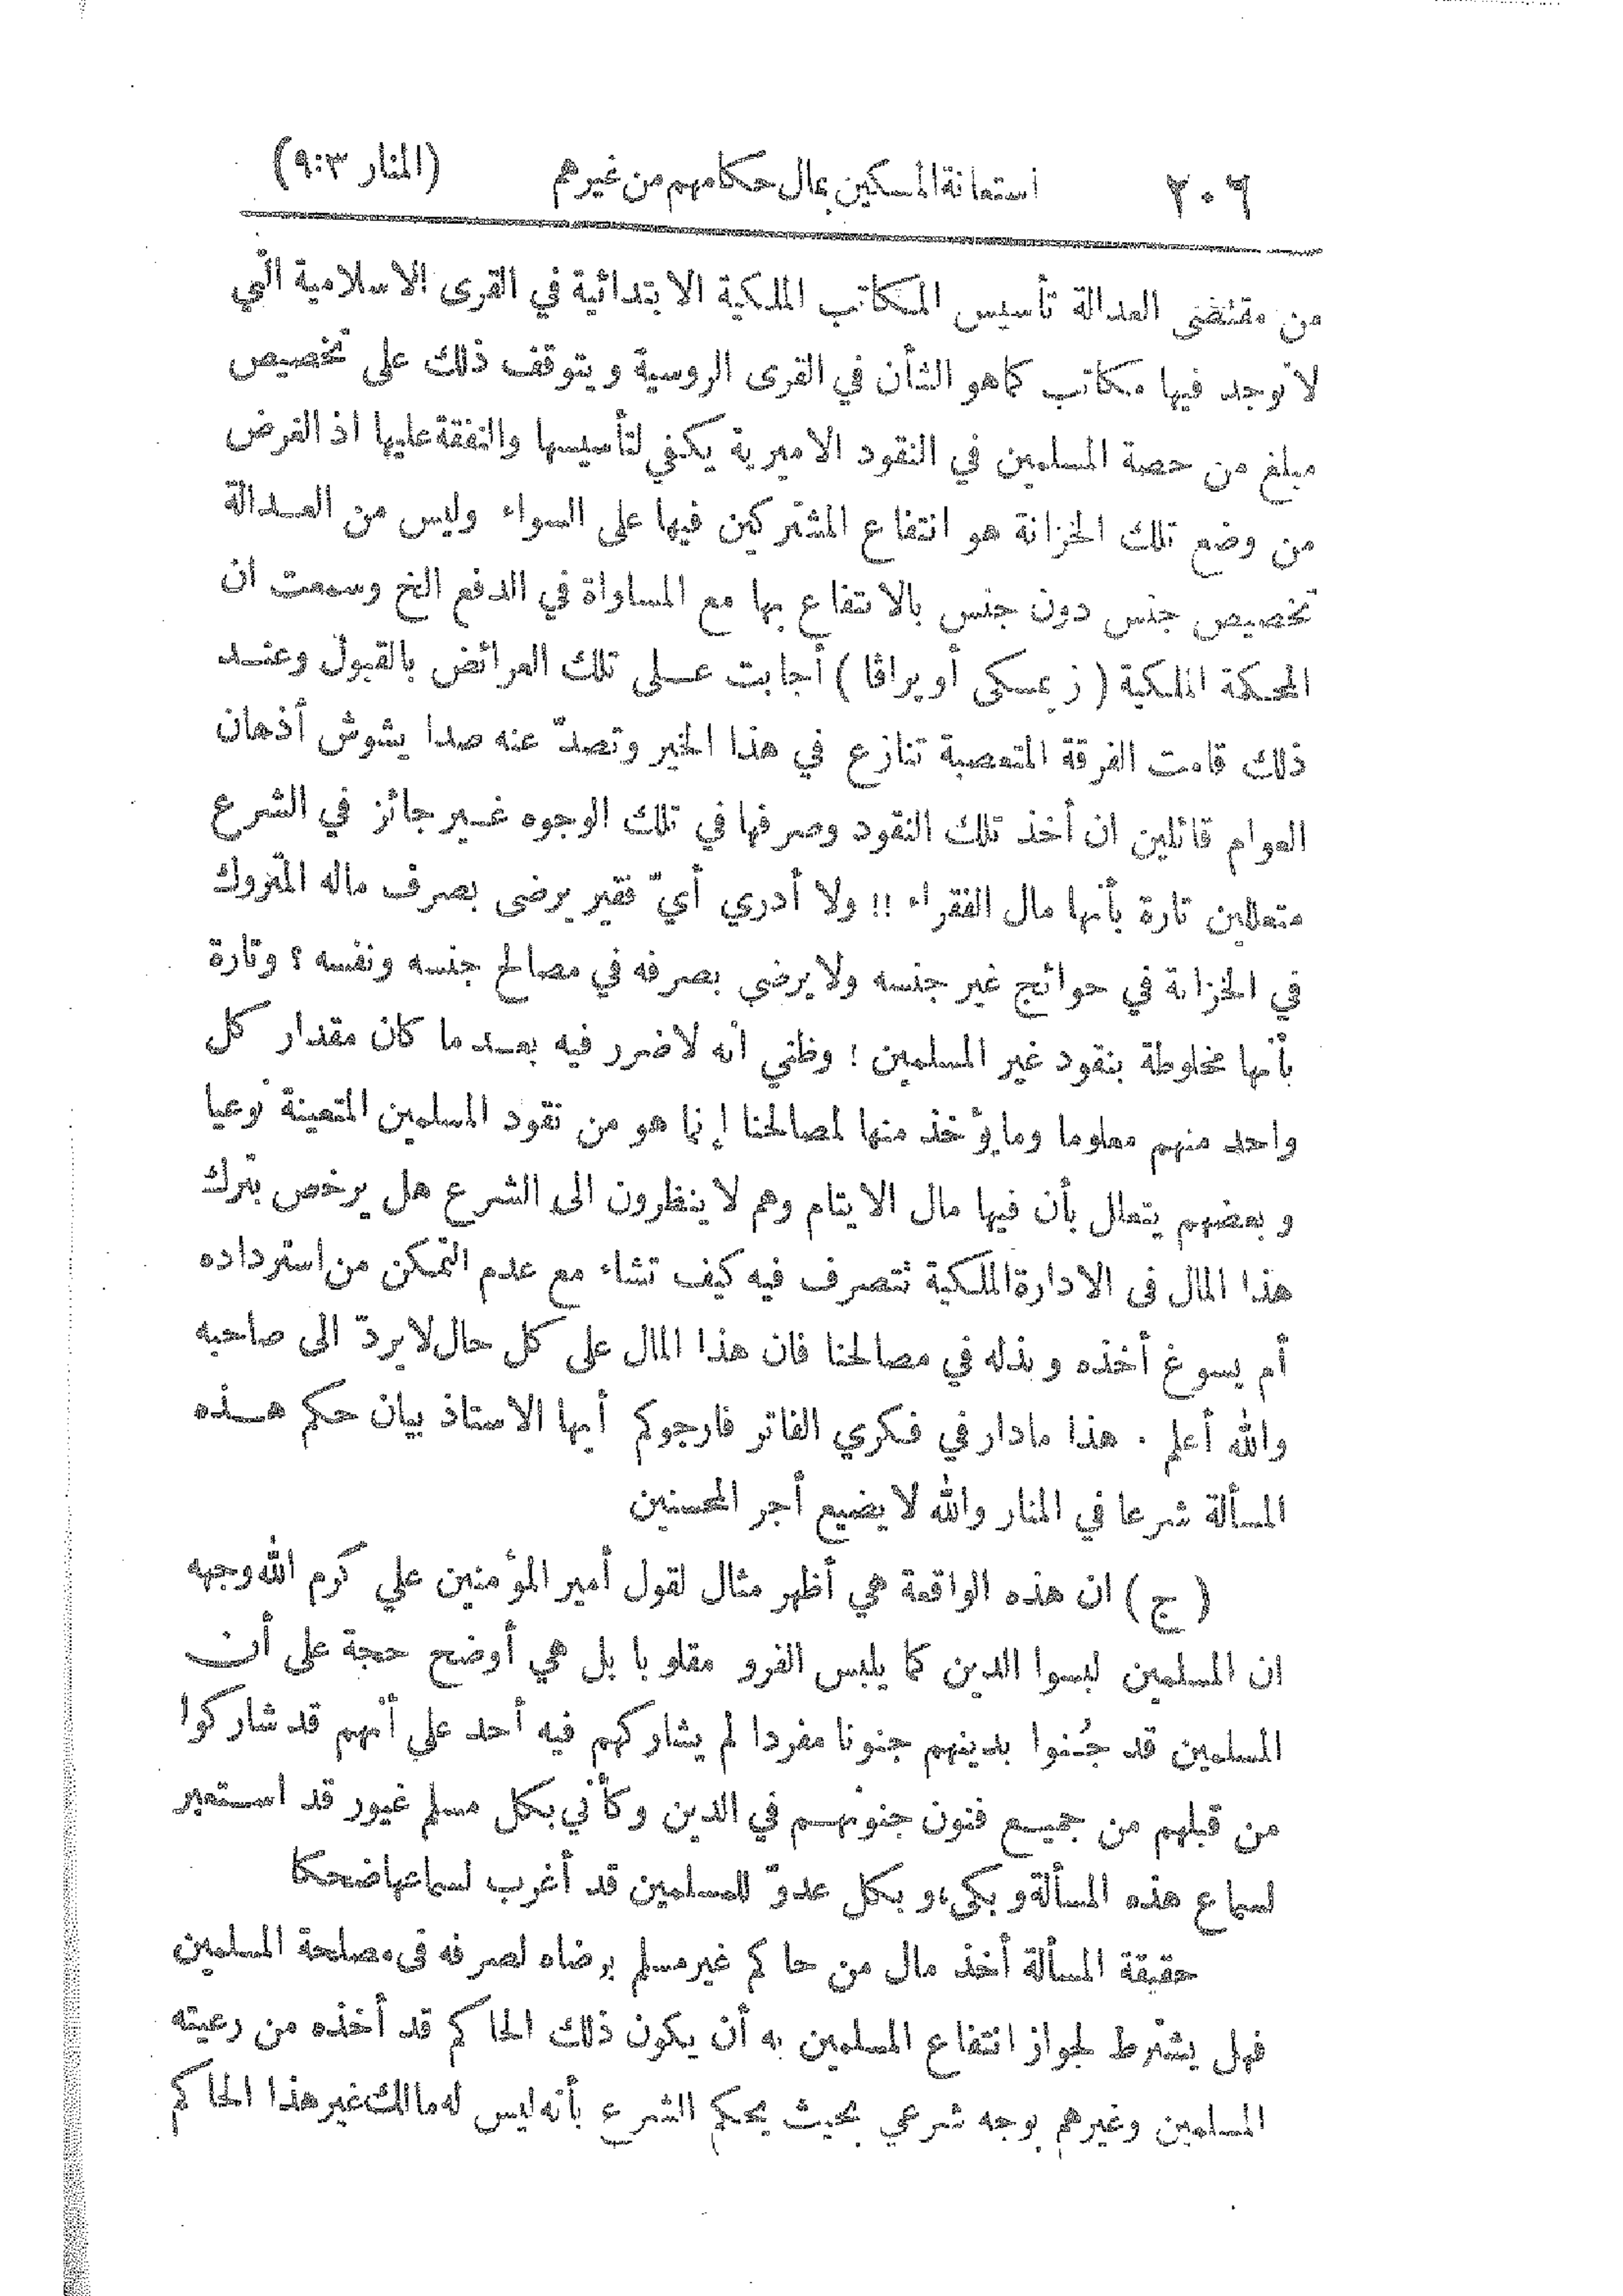 ٢٠٦ استعانة المسكين بمال حكامهم من غيرهم (المنار ٩:٣)
من مقتضى العدالة تأسيس المكاتب الملكية الابتدائية في القرى الاسلامية التي
لا توجد فيها مكاتب كما هو الشأن في القرى الروسية ويتوقف ذلك على تخصيص
مبلغ من حصة المسلمين في النقود الاميرية يكفي لتأسيسها والنفقة عليها اذ الغرض
من وضع تلك الخزانة هو انتفاع المشتركين فيها على السواء وليس من العدالة
تخصيص جنس دون جنس بالانتفاع بها مع المساواة في الدفع الخ وسمعت ان
المحكمة الملكية (زعسكى أو يراڤا) أجابت على تلك العرائض بالقبول وعند
ذلك قامت الفرقة المتعصبة تنازع في هذا الخير وتصدّ عنه صدا يشوش أذهان
العوام قائلين ان أخذ تلك النقود وصرفها في تلك الوجوه غير جائز في الشرع
متعللين تارة بأنها مال الفقراء !! ولا أدري أيّ فقير يرضى بصرف ماله المتروك
في الخزانة في حوائج غير جنسه ولا يرضى بصرفه في مصالح جنسه ونفسه ؟ وتارة
بأنها مخلوطة بنقود غير المسلمين ! وظني انه لا ضرر فيه بعد ما كان مقدار كل
واحد منهم معلوما وما يؤخذ منها لمصالحنا إنما هو من نقود المسلمين المتعينة نوعيا
وبعضهم يتعلل بأن فيها مال الايتام وهم لا ينظرون الى الشرع هل يرخص بترك
هذا المال فى الادارة الملكية تتصرف فيه كيف تشاء مع عدم التمكن من استرداده
أم يسوغ أخذه وبذله في مصالحنا فان هذا المال على كل حال لا يردّ الى صاحبه
والله أعلم . هذا ما دار في فكري الفاتر فارجوكم أيها الاستاذ بيان حكم هذه
المسألة شرعا في المنار والله لا يضيع أجر المحسنين
(ج) ان هذه الواقعة هي أظهر مثال لقول أمير المؤمنين علي كرم الله وجهه
ان المسلمين لبسوا الدين كما يلبس الفرو مقلوبا بل هي أوضح حجة على أن
المسلمين قد جُنوا بدينهم جنونا مفردا لم يشاركهم فيه أحد على أنهم قد شاركوا
من قبلهم من جميع فنون جنونهم في الدين وكأني بكل مسلم غيور قد استعبر
لسماع هذه المسألة وبكى، وبكل عدوّ للمسلمين قد أغرب لسماعها ضحكا
حقيقة المسألة أخذ مال من حاكم غير مسلم برضاه لصرفه فى مصلحة المسلمين
فهل يشترط لجواز انتفاع المسلمين به أن يكون ذلك الحاكم قد أخذه من رعيته
المسلمين وغيرهم بوجه شرعي بحيث يحكم الشرع بأنه ليس له مالك غير هذا الحاكم